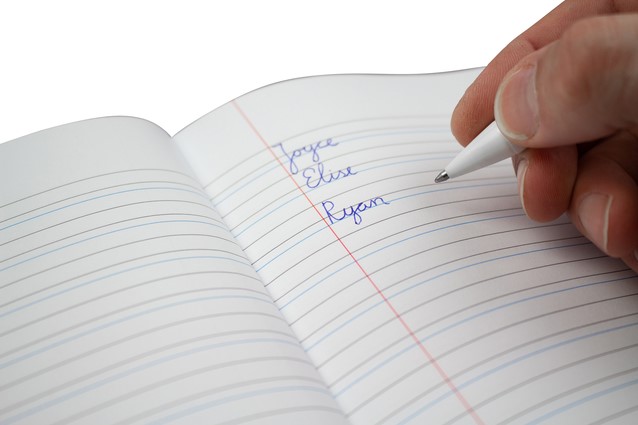 Joyce
Elise
Ryan